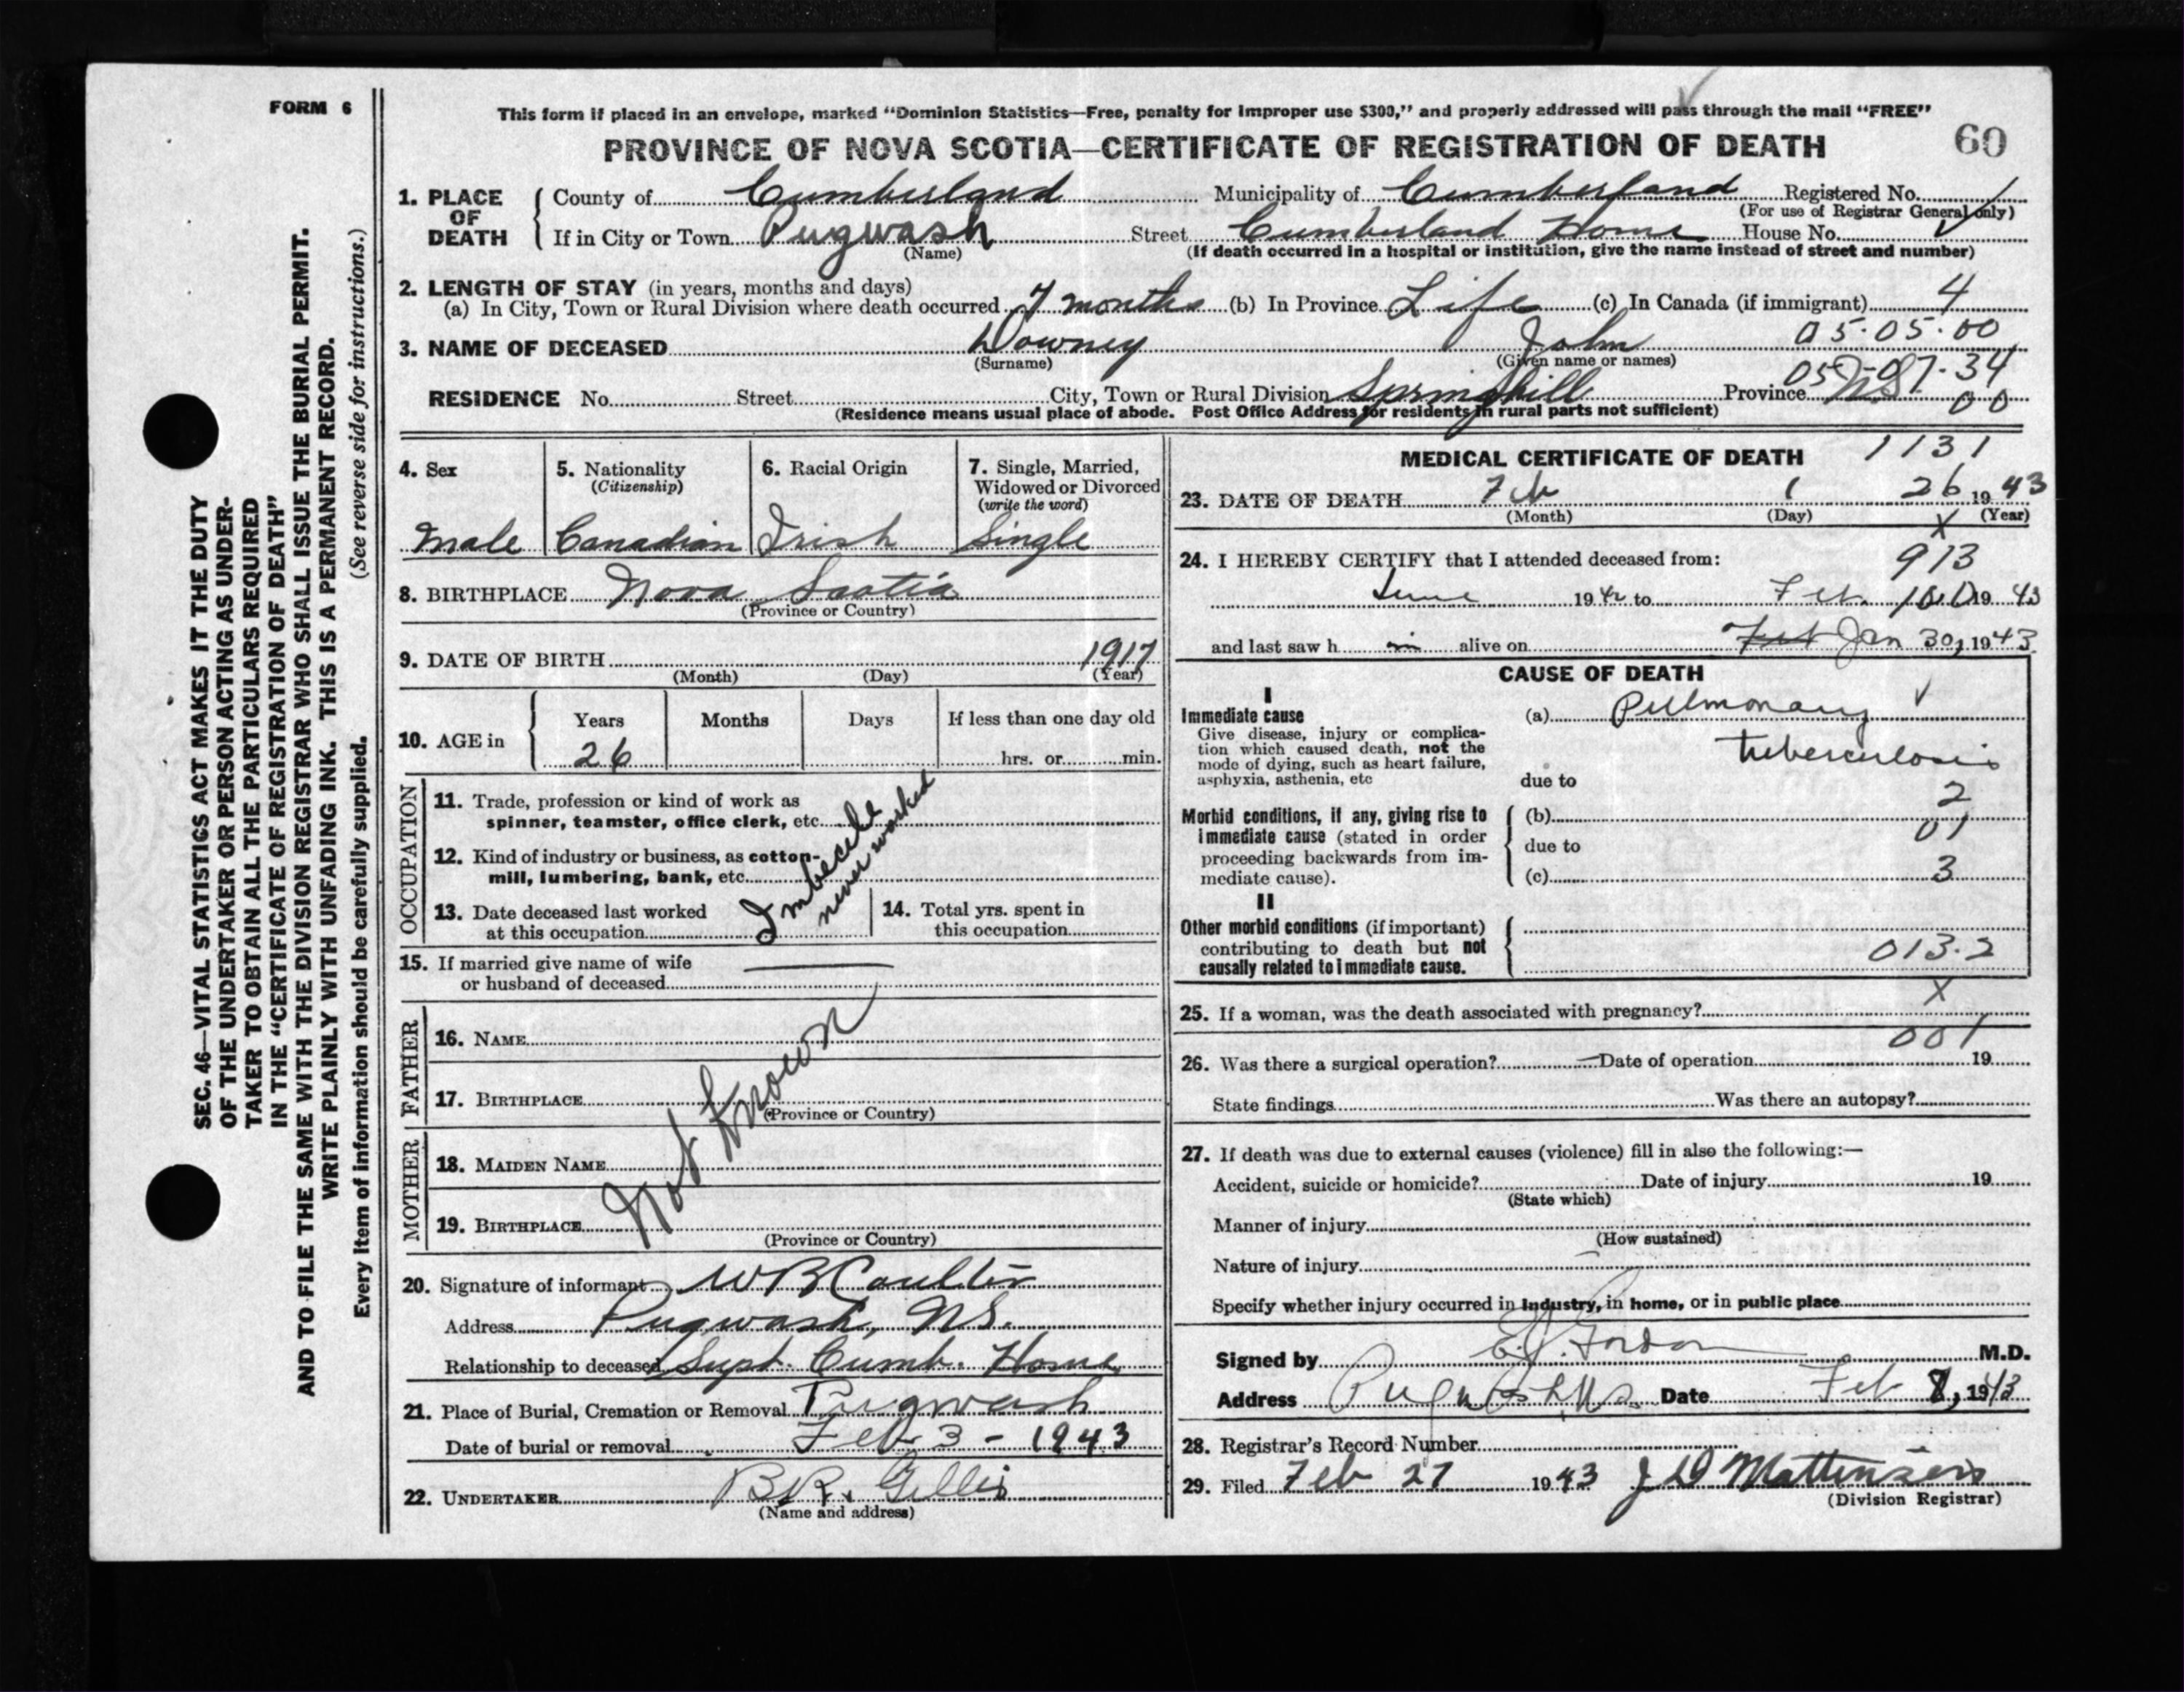 FORM 6
SEC. 46—VITAL STATISTICS ACT MAKES IT THE DUTY
OF THE UNDERTAKER OR PERSON ACTING AS UNDER-
TAKER TO OBTAIN ALL THE PARTICULARS REQUIRED
IN THE "CERTIFICATE OF REGISTRATION OF DEATH"
AND TO FILE THE SAME WITH THE DIVISION REGISTRAR WHO SHALL ISSUE THE BURIAL PERMIT.
WRITE PLAINLY WITH UNFADING INK. THIS IS A PERMANENT RECORD.
Every item of information should be carefully supplied. (See reverse side for instructions.)
This form if placed in an envelope, marked "Dominion Statistics—Free, penalty for improper use $300," and properly addressed will pass through the mail "FREE"
PROVINCE OF NOVA SCOTIA—CERTIFICATE OF REGISTRATION OF DEATH 60
1. PLACE OF DEATH
County of Cumberland Municipality of Cumberland Registered No.
(For use of Registrar General only)
If in City or Town Pugwash Street Cumberland Home House No.
(Name) (If death occurred in a hospital or institution, give the name instead of street and number)
2. LENGTH OF STAY (in years, months and days)
(a) In City, Town or Rural Division where death occurred 7 months (b) In Province Life (c) In Canada (if immigrant) 4
05·05·00
3. NAME OF DECEASED Downey John
(Surname) (Given name or names)
05-07·34
RESIDENCE No. Street City, Town or Rural Division Springhill Province N.S.
00
(Residence means usual place of abode. Post Office Address for residents in rural parts not sufficient)
4. Sex 5. Nationality 6. Racial Origin 7. Single, Married,
(Citizenship) Widowed or Divorced
(write the word)
Male Canadian Irish Single
8. BIRTHPLACE Nova Scotia
(Province or Country)
9. DATE OF BIRTH 1917
(Month) (Day) (Year)
10. AGE in Years Months Days If less than one day old
26 hrs. or min.
OCCUPATION
11. Trade, profession or kind of work as
spinner, teamster, office clerk, etc.
12. Kind of industry or business, as cotton-
mill, lumbering, bank, etc.
Imbecile
never worked
13. Date deceased last worked
at this occupation
14. Total yrs. spent in
this occupation
15. If married give name of wife
or husband of deceased
FATHER
16. NAME
17. BIRTHPLACE
(Province or Country)
Not Known
MOTHER
18. MAIDEN NAME
19. BIRTHPLACE
(Province or Country)
20. Signature of informant W B Coulter
Address Pugwash, N.S.
Relationship to deceased Supt. Cumb. Home
21. Place of Burial, Cremation or Removal Pugwash
Date of burial or removal Feb 3 - 1943
22. UNDERTAKER Gillis
(Name and address)
MEDICAL CERTIFICATE OF DEATH 1131
23. DATE OF DEATH Feb 1 26 1943
(Month) (Day) (Year)
X
24. I HEREBY CERTIFY that I attended deceased from:
913
June 1942 to Feb. 1943
and last saw h im alive on Feb Jan 30, 1943
CAUSE OF DEATH
I
Immediate cause
Give disease, injury or complica-
tion which caused death, not the
mode of dying, such as heart failure,
asphyxia, asthenia, etc
(a) Pulmonary
tuberculosis
due to
2
Morbid conditions, if any, giving rise to
immediate cause (stated in order
proceeding backwards from im-
mediate cause).
(b)
01
due to
(c) 3
II
Other morbid conditions (if important)
contributing to death but not
causally related to immediate cause.
013·2
X
25. If a woman, was the death associated with pregnancy?
001
26. Was there a surgical operation? Date of operation 19
State findings Was there an autopsy?
27. If death was due to external causes (violence) fill in also the following:—
Accident, suicide or homicide? Date of injury 19
(State which)
Manner of injury
(How sustained)
Nature of injury
Specify whether injury occurred in industry, in home, or in public place
Signed by M.D.
Address Pugwash, N.S. Date Feb 1943
28. Registrar's Record Number
29. Filed Feb 27 1943
(Division Registrar)